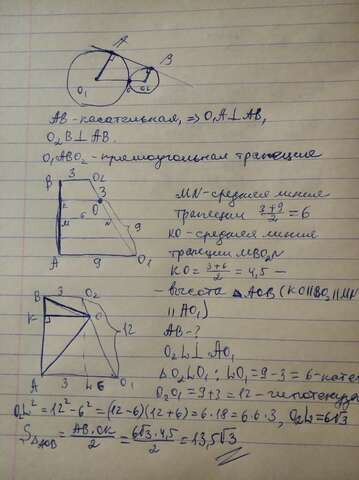 A
B
O₁
O₂
AB - касательная, => O₁A ⊥ AB,
O₂B ⊥ AB.
O₁ABO₂ - прямоугольная трапеция
B 3 O₂
3
O
M N
9
A 9 O₁
MN - средняя линия
трапеции (3+9)/2 = 6
KO - средняя линия
трапеции MBO₂N
KO = (3+6)/2 = 4,5 —
- высота △AOB (KO || BO₂ || MN
|| AO₁)
B O₂
K O 12
A 3 L 6 O₁
AB - ?
O₂L ⊥ AO₁
△O₂LO₁: LO₁ = 9 - 3 = 6 - кате
O₂O₁ = 9+3 = 12 - гипотенуза
O₂L² = 12² - 6² = (12-6)(12+6) = 6·18 = 6·6·3, O₂L = 6√3
S△AOB = AB·OK/2 = 6√3·4,5/2 = 13,5√3